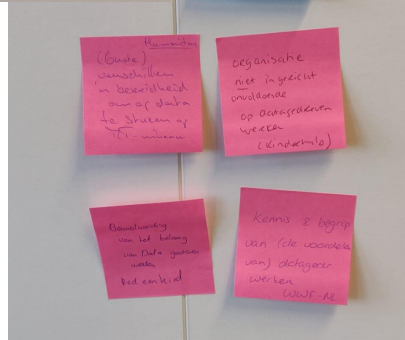 Humanitas
(Grote)
verschillen
in bereidheid
om op data
te sturen op
organisatie
niet ingericht
onvoldoende
op datagedreven
werken
(Kinderhulp)
Bewustwording
van het belang
van Data gedreven
werken
Red een kind
Kennis & begrip
van (de voordelen
van) datagedr
werken
WWF-NL